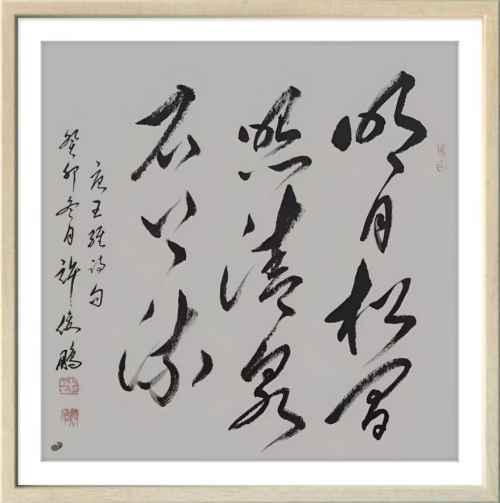 明月松间
照清泉
石上流
唐王维诗句
癸卯冬月许俊鹏